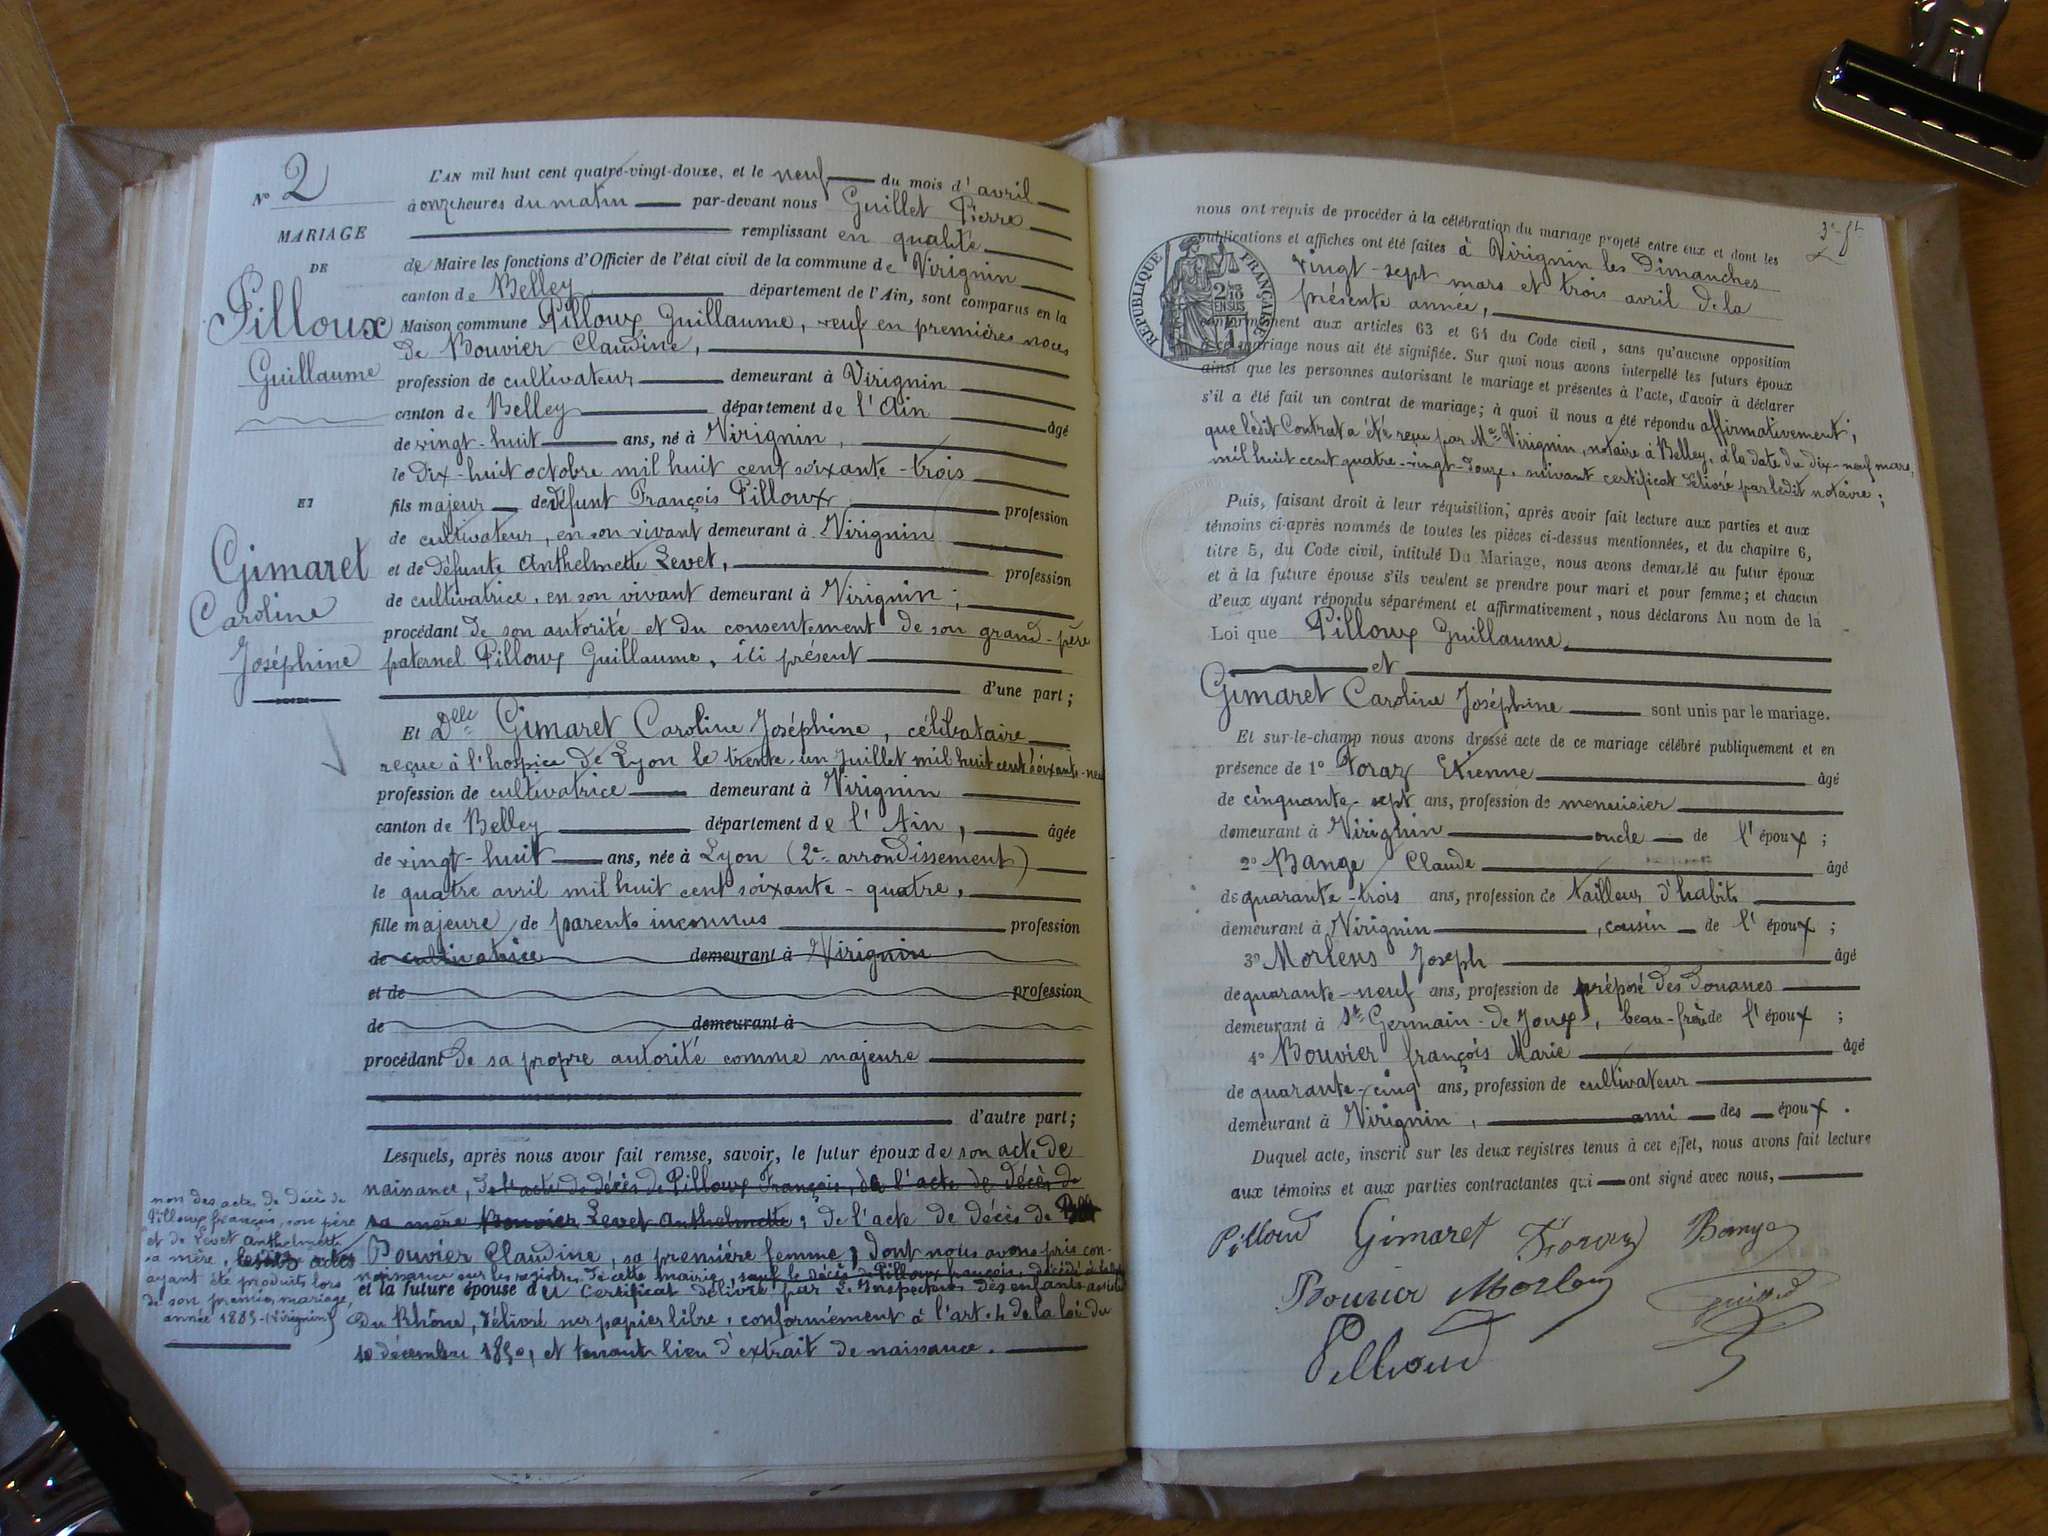 N° 2
MARIAGE
DE
Pilloux
Guillaume
ET
Gimaret
Caroline
Joséphine
L'AN mil huit cent quatre-vingt-douze, et le neuf du mois d'avril
à onze heures du matin par-devant nous Guillet Pierre
remplissant en qualité
de Maire les fonctions d'Officier de l'état civil de la commune de Virignin
canton de Belley département de l'Ain, sont comparus en la
Maison commune Pilloux Guillaume, veuf en premières noces
de Bouvier Claudine,
profession de cultivateur demeurant à Virignin
canton de Belley département de l'Ain âgé
de vingt-huit ans, né à Virignin,
le dix-huit octobre mil huit cent soixante-trois
fils majeur de défunt François Pilloux profession
de cultivateur, en son vivant demeurant à Virignin
et de défunte Anthelmette Levet, profession
de cultivatrice, en son vivant demeurant à Virignin ;
procédant de son autorité et du consentement de son grand-père
paternel Pilloux Guillaume, ici présent
d'une part ;
Et Delle Gimaret Caroline Joséphine, célibataire
reçue à l'hospice de Lyon le trente-un juillet mil huit cent soixante-neuf
profession de cultivatrice demeurant à Virignin
canton de Belley département de l'Ain, âgée
de vingt-huit ans, née à Lyon (2e arrondissement)
le quatre avril mil huit cent soixante-quatre,
fille majeure de parents inconnus profession
de cultivatrice demeurant à Virignin
et de profession
de demeurant à
procédant de sa propre autorité comme majeure
d'autre part ;
Lesquels, après nous avoir fait remise, savoir, le futur époux de son acte de
naissance, de l'acte de décès de Pilloux François, de l'acte de décès de
sa mère Levet Anthelmette, de l'acte de décès de
Bouvier Claudine, sa première femme, dont nous avons pris con-
naissance sur les registres de cette mairie, sauf le décès de Pilloux françois, décédé à
et la future épouse du certificat délivré par l'Inspecteur des enfants assistés
du Rhône, délivré sur papier libre, conformément à l'art. 4 de la loi du
10 décembre 1850, et tenant lieu d'extrait de naissance.
non des actes de décès de
Pilloux françois, son père
et de Levet Anthelmette
sa mère, lesdits actes
ayant été produits lors
de son premier mariage,
année 1885 (Virignin)
nous ont requis de procéder à la célébration du mariage projeté entre eux et dont les
publications et affiches ont été faites à Virignin les Dimanches
vingt-sept mars et trois avril de la
présente année,
conformément aux articles 63 et 64 du Code civil, sans qu'aucune opposition
à ce mariage nous ait été signifiée. Sur quoi nous avons interpellé les futurs époux
ainsi que les personnes autorisant le mariage et présentes à l'acte, d'avoir à déclarer
s'il a été fait un contrat de mariage ; à quoi il nous a été répondu affirmativement ;
que ledit Contrat a été reçu par Me Virignin, notaire à Belley, à la date du dix-neuf mars
mil huit cent quatre-vingt-douze, suivant certificat délivré par ledit notaire ;
RÉPUBLIQUE FRANÇAISE
2/10 EN SUS
1
Puis, faisant droit à leur réquisition, après avoir fait lecture aux parties et aux
témoins ci-après nommés de toutes les pièces ci-dessus mentionnées, et du chapitre 6,
titre 5, du Code civil, intitulé Du Mariage, nous avons demandé au futur époux
et à la future épouse s'ils veulent se prendre pour mari et pour femme ; et chacun
d'eux ayant répondu séparément et affirmativement, nous déclarons Au nom de la
Loi que Pilloux Guillaume,
et
Gimaret Caroline Joséphine sont unis par le mariage.
Et sur-le-champ nous avons dressé acte de ce mariage célébré publiquement et en
présence de 1° Foraz Etienne âgé
de cinquante-sept ans, profession de menuisier
demeurant à Virignin oncle de l'époux ;
2° Bange Claude âgé
de quarante-trois ans, profession de tailleur d'habits
demeurant à Virignin, cousin de l'époux ;
3° Morlens Joseph âgé
de quarante-neuf ans, profession de préposé des Douanes
demeurant à St Germain-de-Joux, beau-frère de l'époux ;
4° Bouvier françois Marie âgé
de quarante-cinq ans, profession de cultivateur
demeurant à Virignin, ami des époux.
Duquel acte, inscrit sur les deux registres tenus à cet effet, nous avons fait lecture
aux témoins et aux parties contractantes qui ont signé avec nous,
Pilloud Gimaret Foraz Bange
Bouvier Morlens Guillet
Pilloud